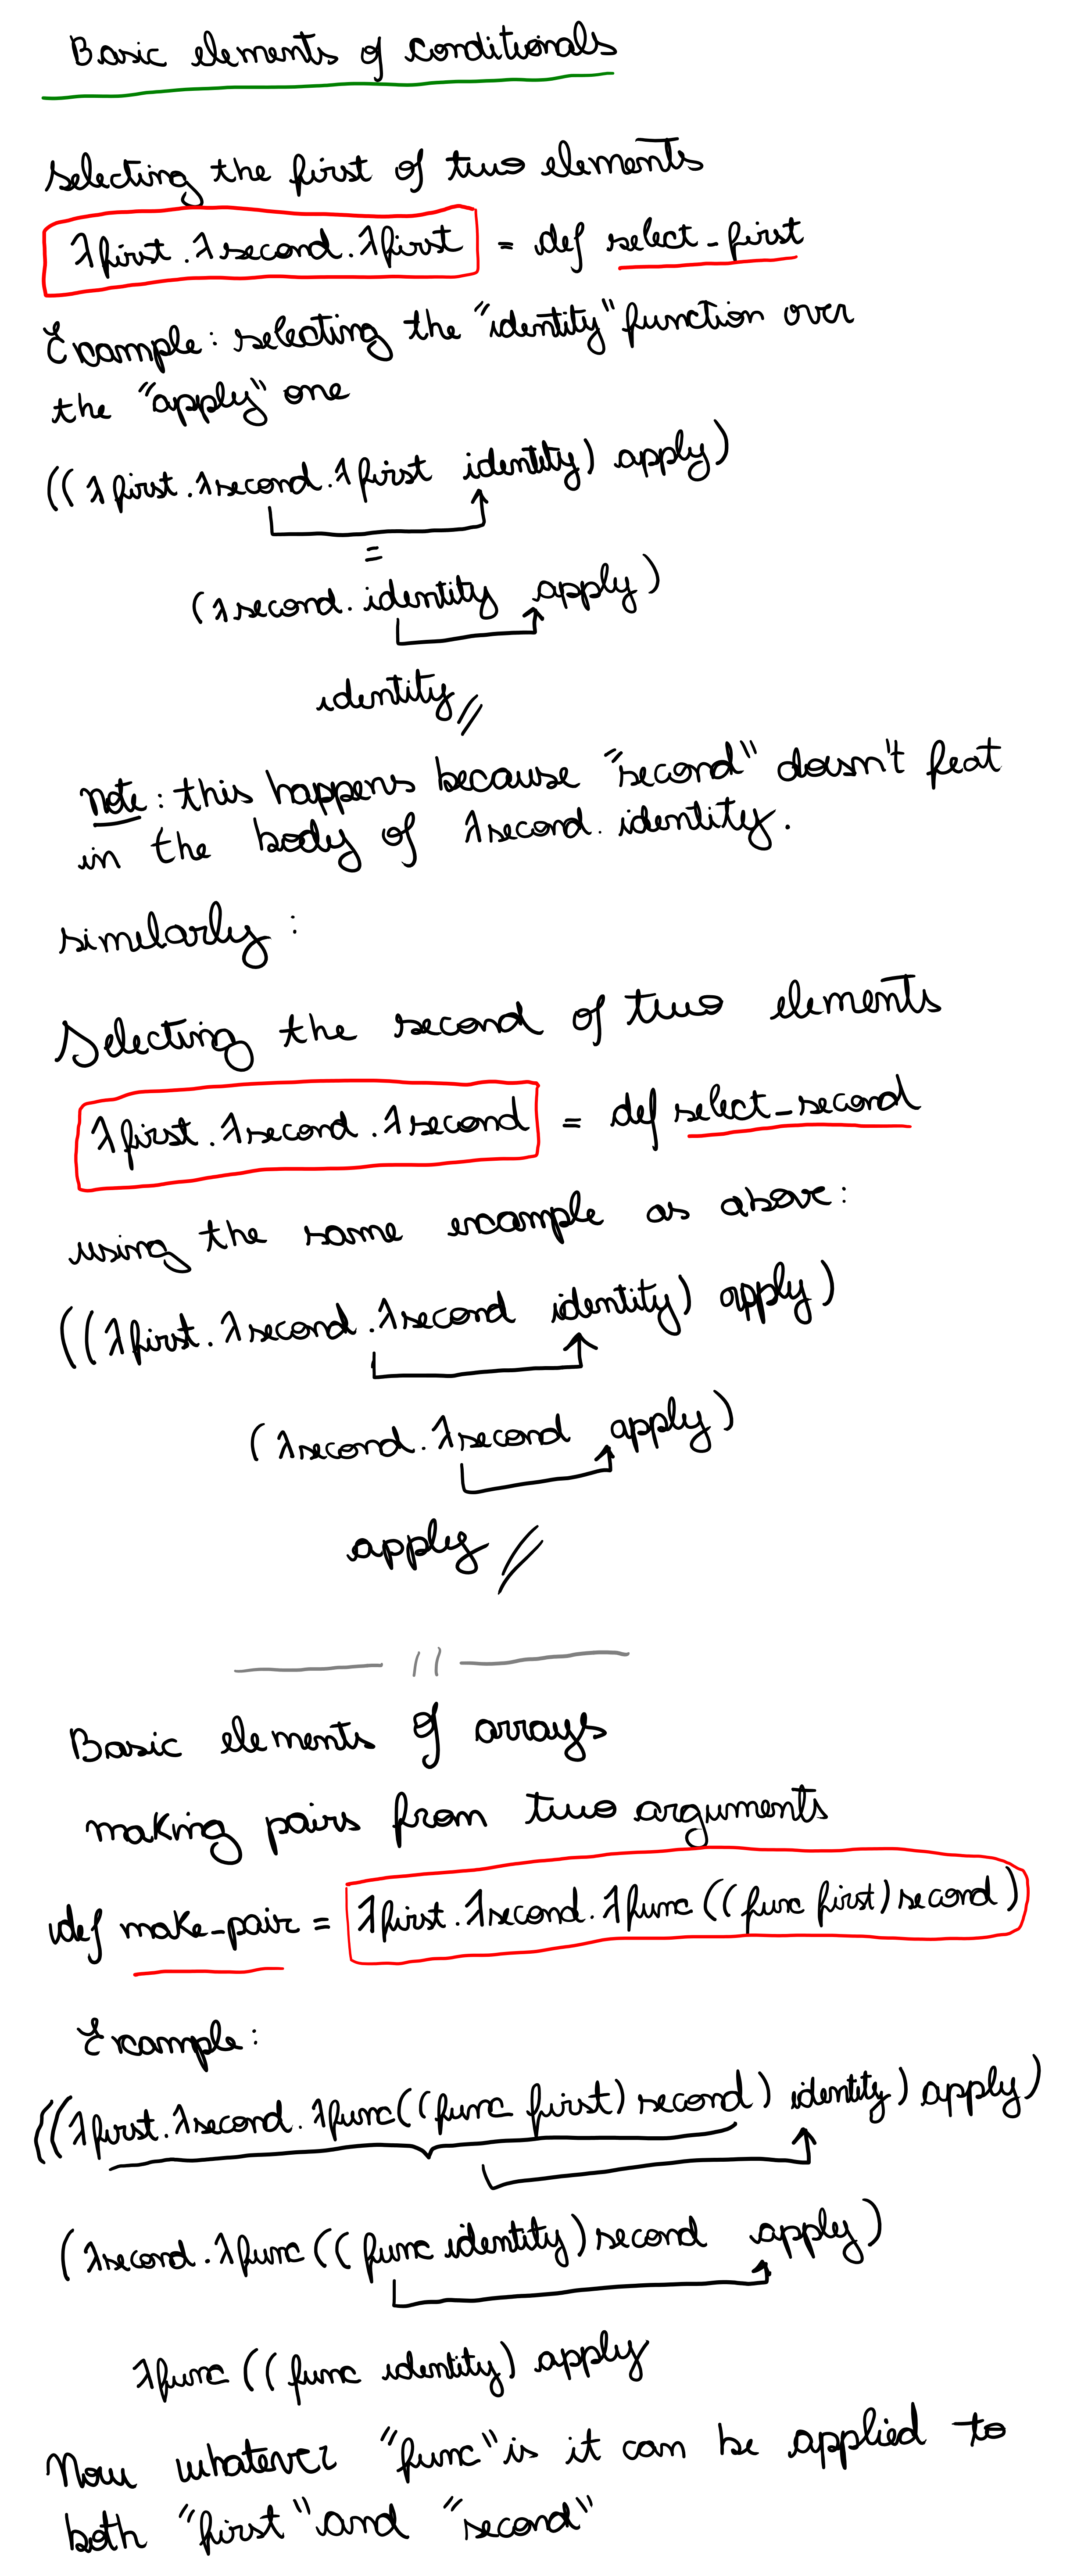 Basic elements of conditionals
selecting the first of two elements
λfirst.λsecond.λfirst = def select_first
Example: selecting the "identity" function over
the "apply" one
((λfirst.λsecond.λfirst identity) apply)
=
(λsecond.identity apply)
identity //
Note: this happens because "second" doesn't feat
in the body of λsecond.identity.
similarly:
Selecting the second of two elements
λfirst.λsecond.λsecond = def select_second
using the same example as above:
((λfirst.λsecond.λsecond identity) apply)
(λsecond.λsecond apply)
apply //
Basic elements of arrays
making pairs from two arguments
def make_pair = λfirst.λsecond.λfunc((func first)second)
Example:
((λfirst.λsecond.λfunc((func first)second) identity) apply)
(λsecond.λfunc((func identity)second apply)
λfunc((func identity) apply
Now whatever "func" is it can be applied to
both "first" and "second"